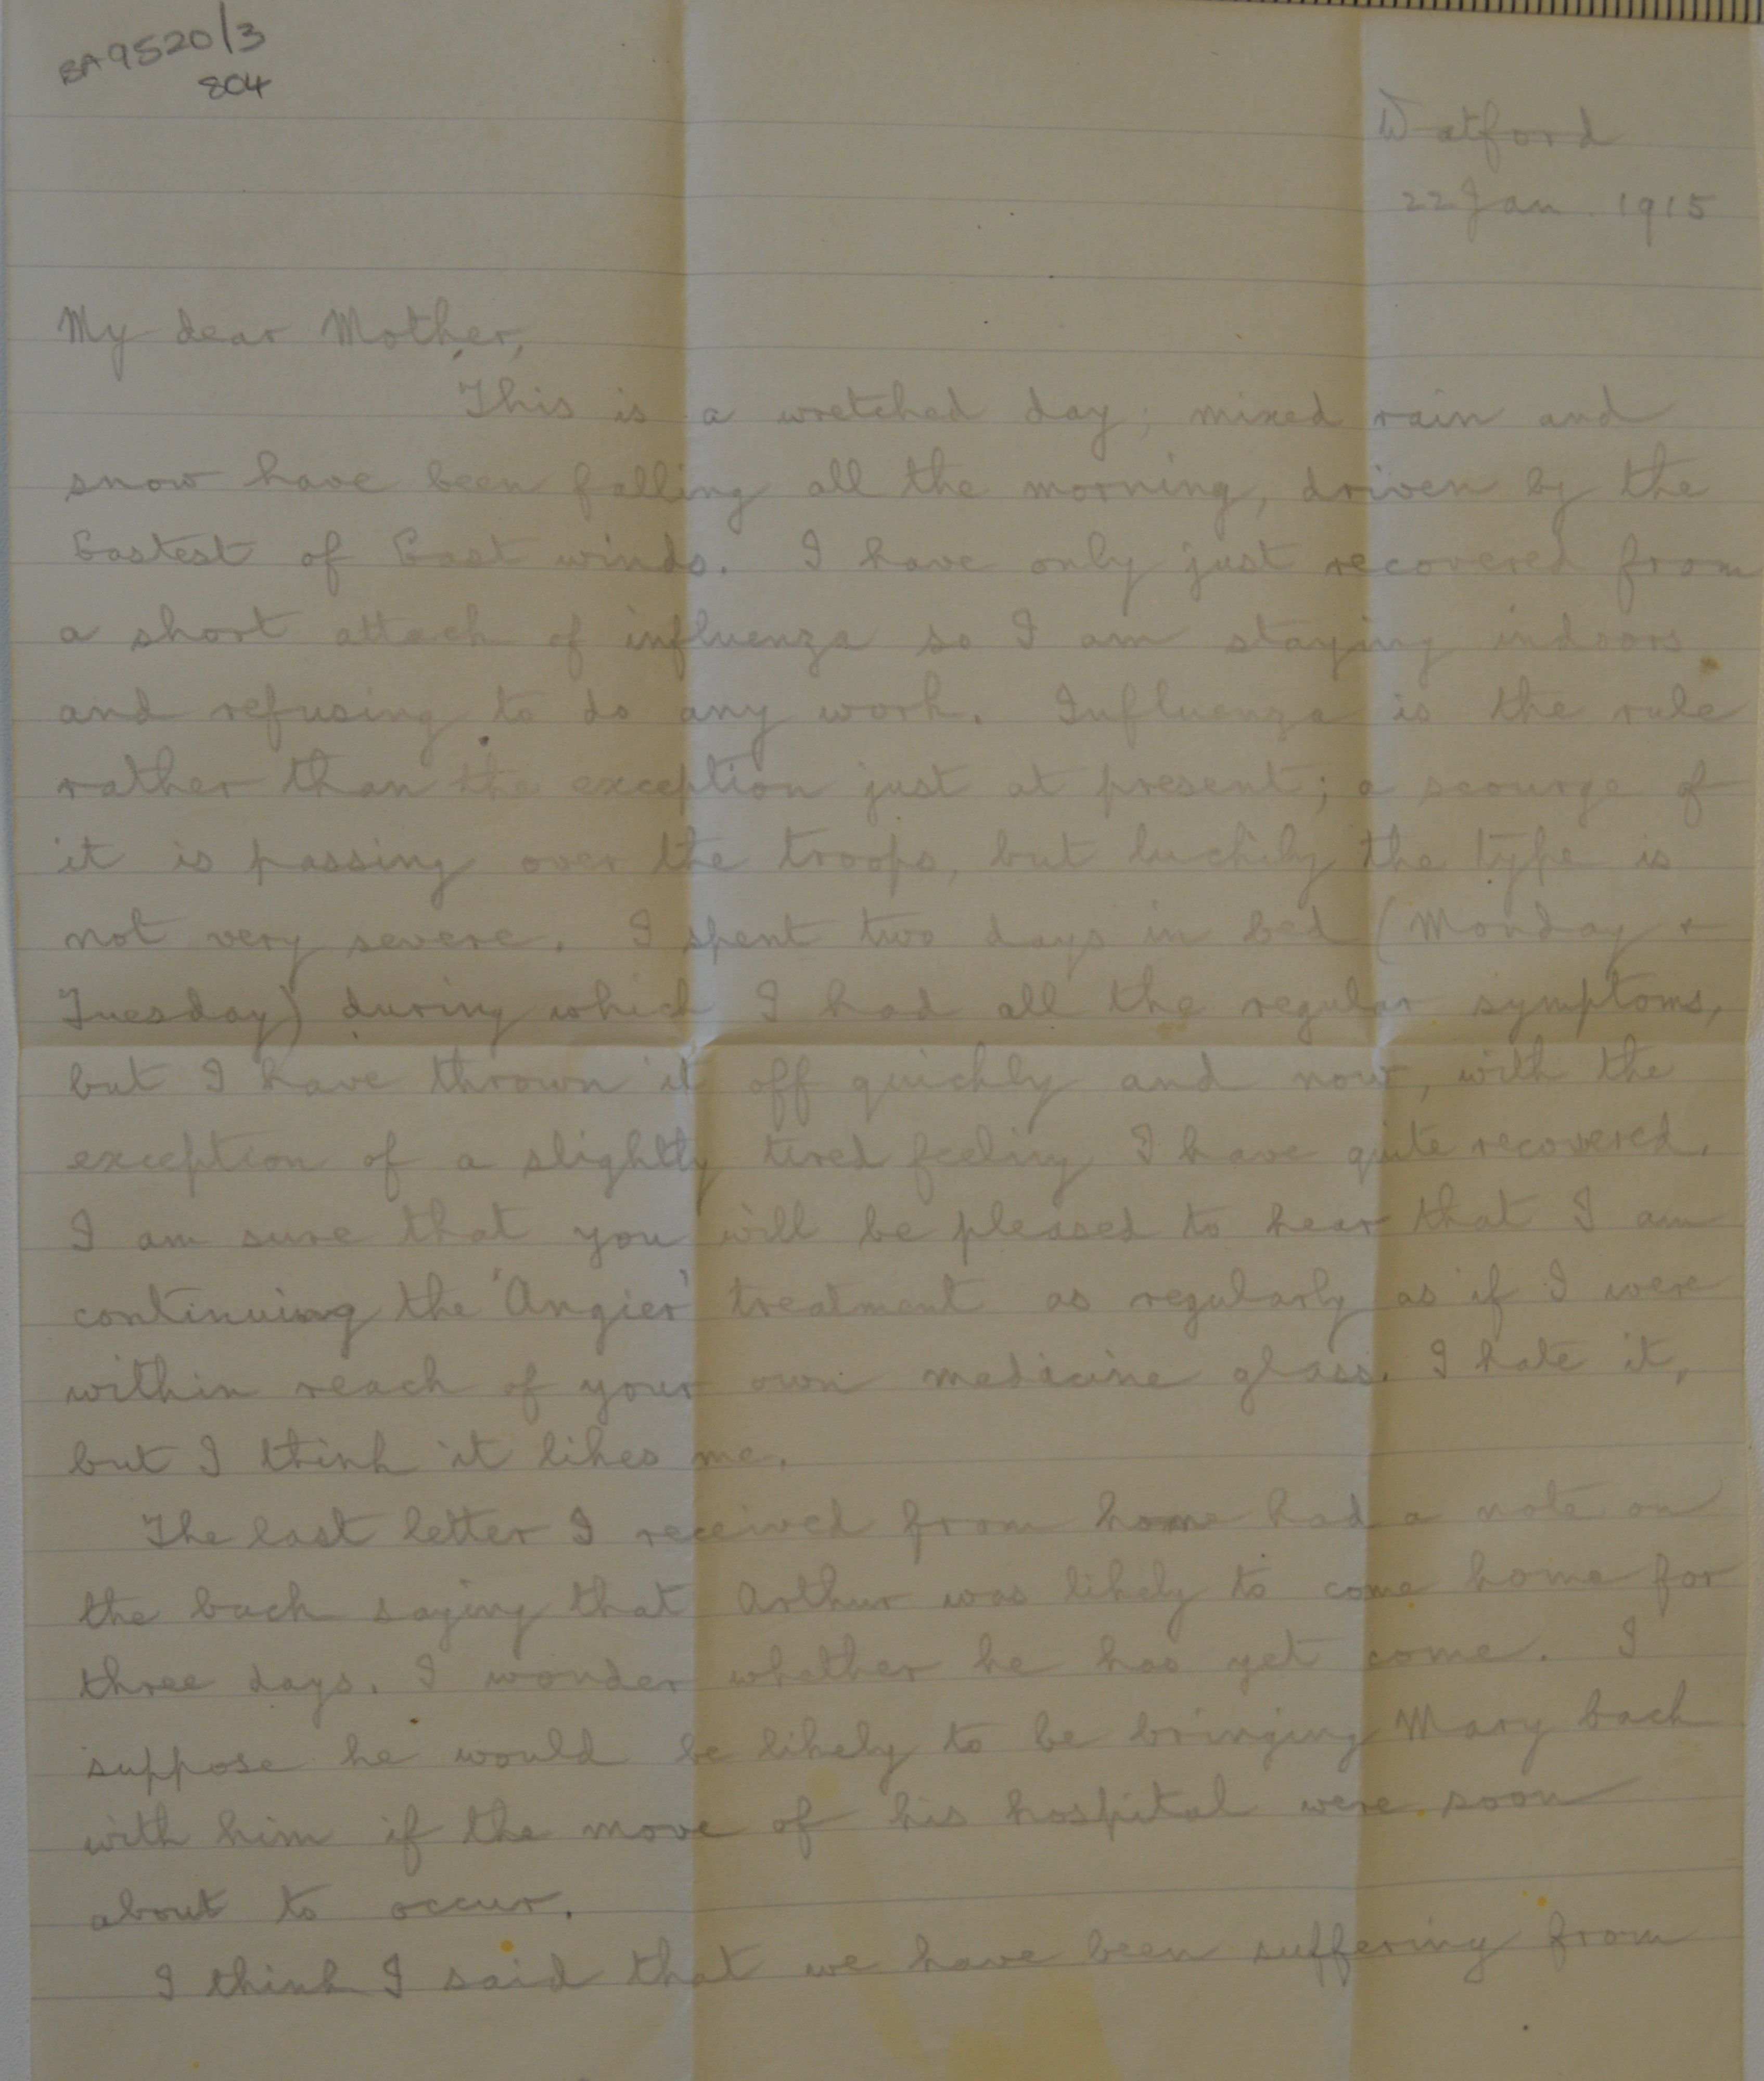 BA9520/3
804
Watford
22 Jan 1915
My dear Mother,
This is a wretched day; mixed rain and
snow have been falling all the morning, driven by the
Eastest of East winds. I have only just recovered from
a short attack of influenza so I am staying indoors
and refusing to do any work. Influenza is the rule
rather than the exception just at present; a scourge of
it is passing over the troops, but luckily the type is
not very severe. I spent two days in bed (Monday &
Tuesday) during which I had all the regular symptoms,
but I have thrown it off quickly and now, with the
exception of a slightly tired feeling I have quite recovered.
I am sure that you will be pleased to hear that I am
continuing the 'Angier' treatment as regularly as if I were
within reach of your own medicine glass. I hate it,
but I think it likes me.
The last letter I received from home had a note on
the back saying that Arthur was likely to come home for
three days. I wonder whether he has yet come. I
suppose he would be likely to be bringing Mary back
with him if the move of his hospital were soon
about to occur.
I think I said that we have been suffering from